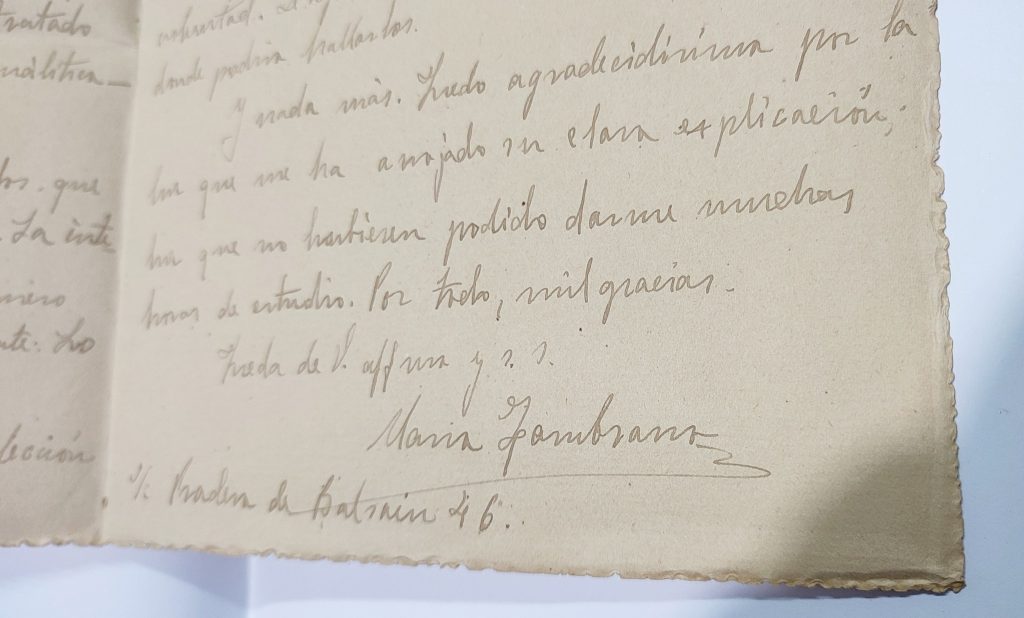 tratado
analítica
los. que
. La inte
mero
nte: Lo
lección
voluntad.
donde podría hallarlos.
Y nada más. Quedo agradecidísima por la
luz que me ha arrojado su clara explicación,
luz que no hubiesen podido darme muchas
horas de estudio. Por todo, mil gracias.
Queda de V. affma y s. s.
María Zambrano
S/c Pradera de Balsain 46.